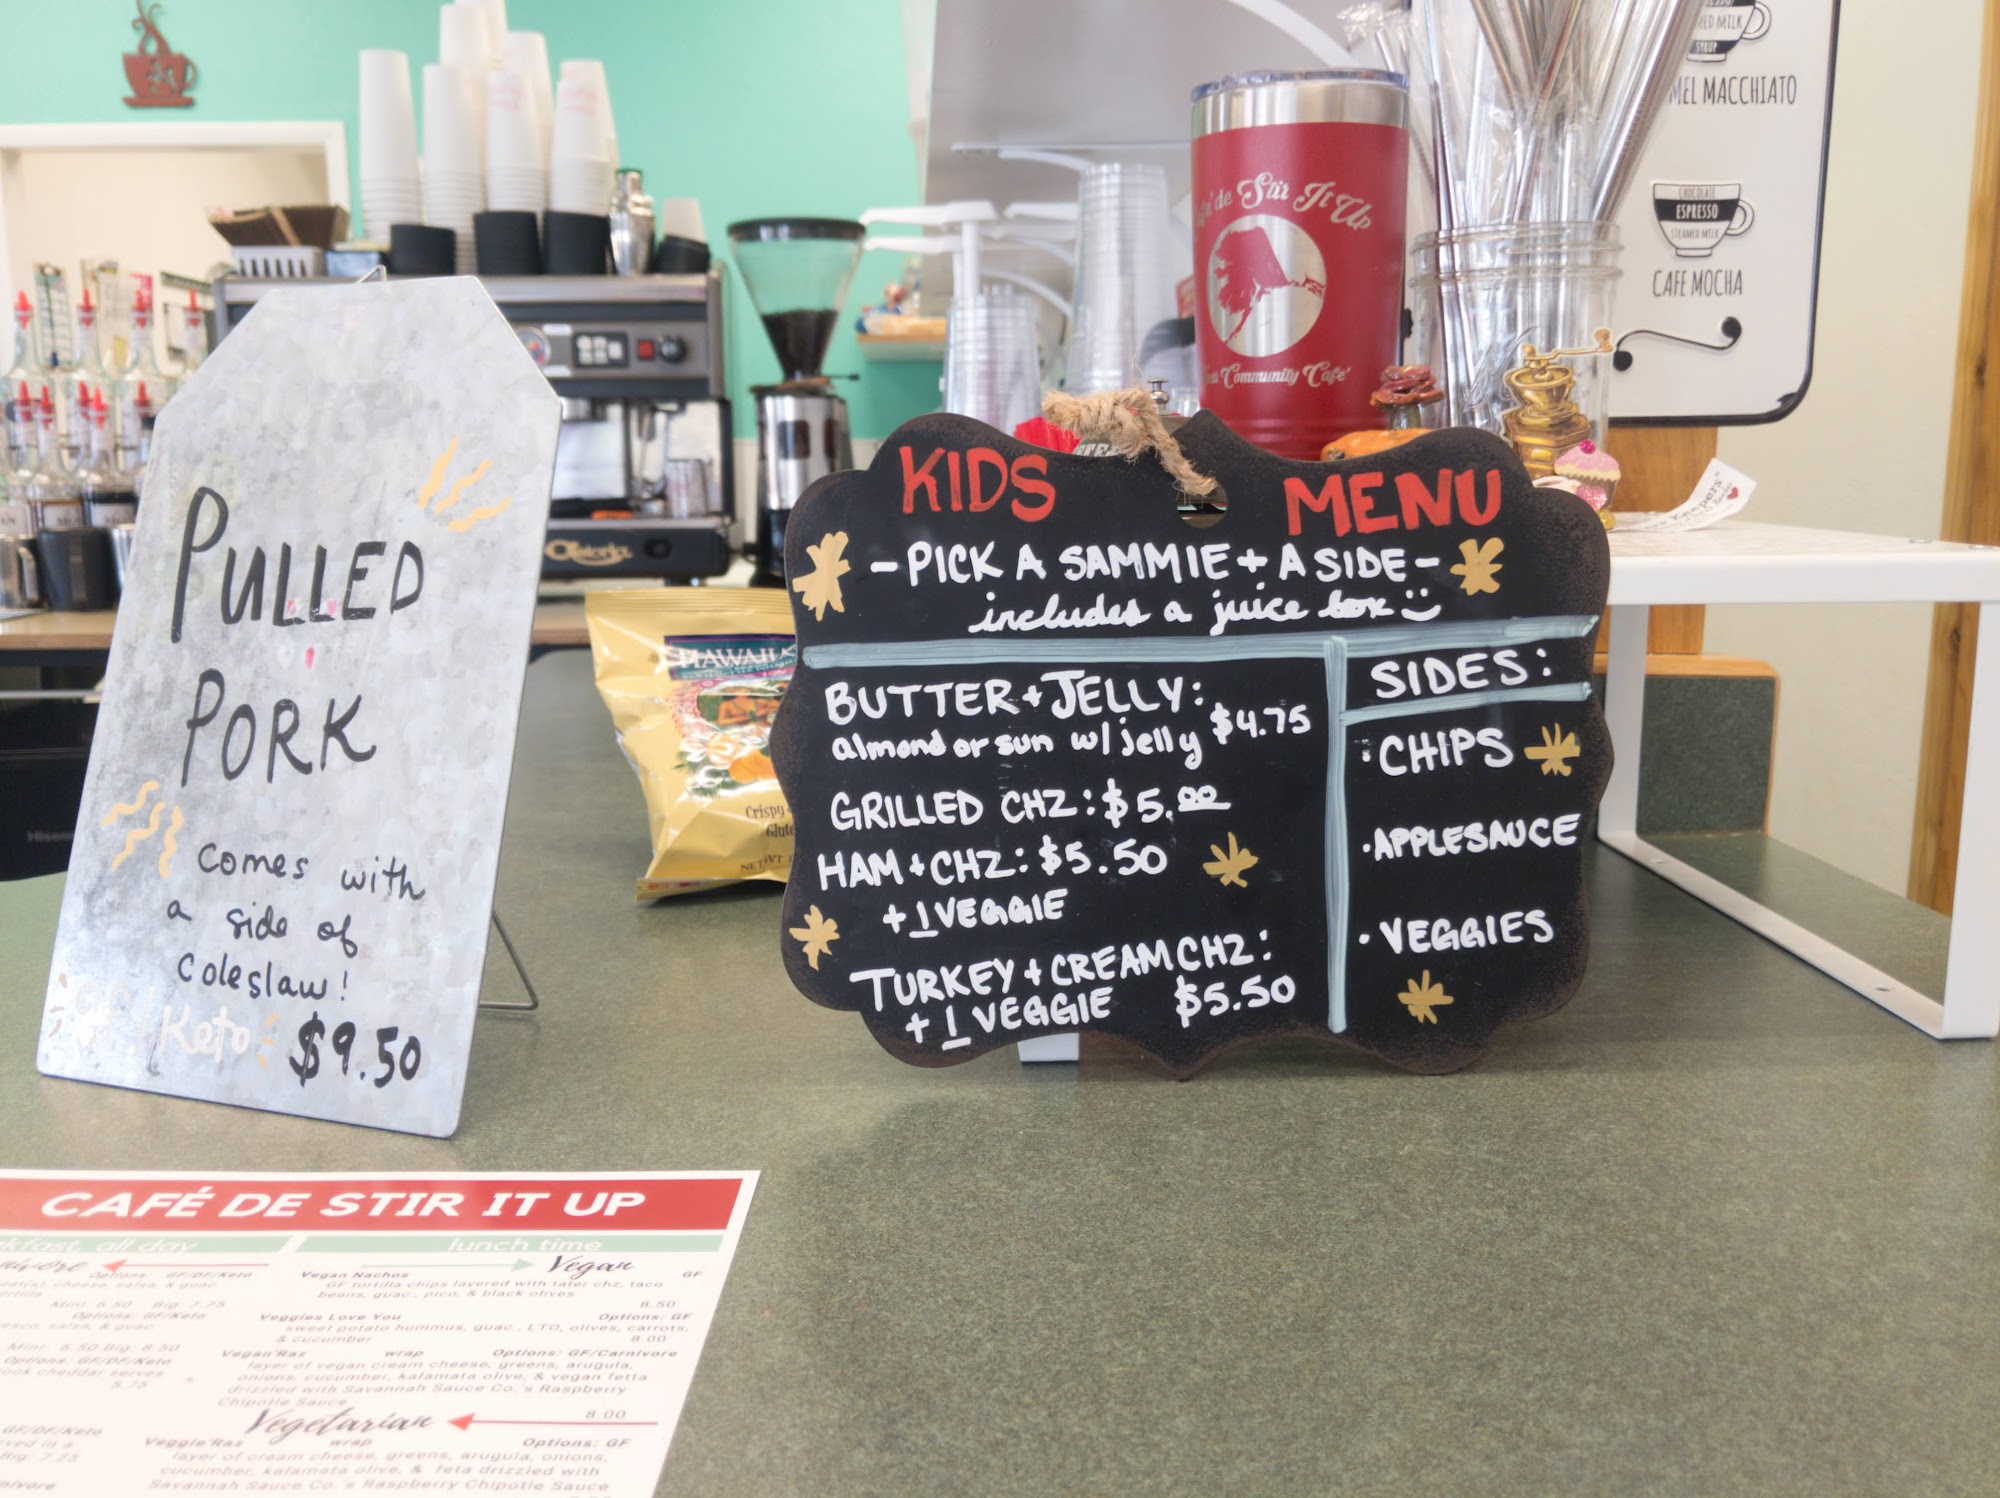 PULLED
PORK
comes with
a side of
coleslaw!
GF/Keto
$9.50
KIDS MENU
-PICK A SAMMIE + A SIDE-
includes a juice box
BUTTER + JELLY:
almond or sun w/ jelly $4.75
GRILLED CHZ: $5.00
HAM + CHZ: $5.50
+ 1 VEGGIE
TURKEY + CREAM CHZ:
+ 1 VEGGIE $5.50
SIDES:
· CHIPS
· APPLESAUCE
· VEGGIES
de Stir It Up
Community Café
MEL MACCHIATO
SYRUP
CHOCOLATE
ESPRESSO
STEAMED MILK
CAFE MOCHA
Keepers
Astoria
HAWAII
Crispy
Glute
CAFÉ DE STIR IT UP
kfast, all day
lunch time
Options: GF/DF/Keto
cheese, salsa, & guac
Mini: 6.50 Big: 7.75
Options: GF/Keto
salsa, & guac
Mini: 6.50 Big: 8.50
Options: GF/DF/Keto
ook cheddar serves
5.75
GF/DF/Keto
rved in a
Big: 7.25
nivore
Vegan
Vegan Nachos GF
GF tortilla chips layered with tater chz, taco
beans, guac., pico, & black olives
8.50
Veggies Love You Options: GF
sweet potato hummus, guac., LTO, olives, carrots,
& cucumber 8.00
Vegan'Raz wrap Options: GF/Carnivore
layer of vegan cream cheese, greens, arugula,
onions, cucumber, kalamata olive, & vegan fetta
drizzled with Savannah Sauce Co.'s Raspberry
Chipotle Sauce
8.00
Vegetarian
Veggie'Raz wrap Options: GF
layer of cream cheese, greens, arugula, onions,
cucumber, kalamata olive, & feta drizzled with
Savannah Sauce Co.'s Raspberry Chipotle Sauce